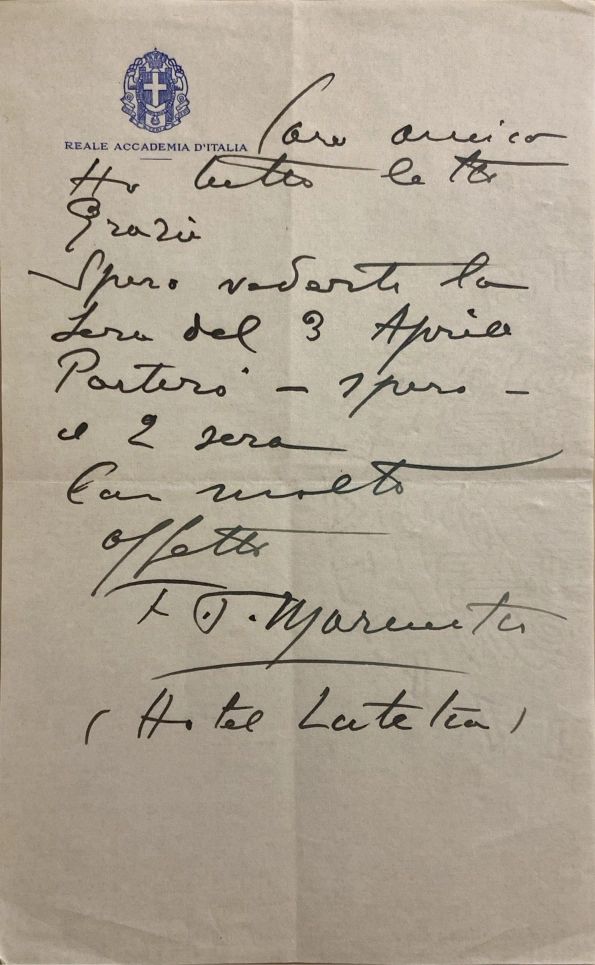 REALE ACCADEMIA D'ITALIA
Caro amico
Ho tutto letto
Grazie
Spero vederti la
sera del 3 Aprile
Partirò – spero –
il 2 sera
Con molto
affetto
F. T. Marinetti
(Hotel Lutetia)